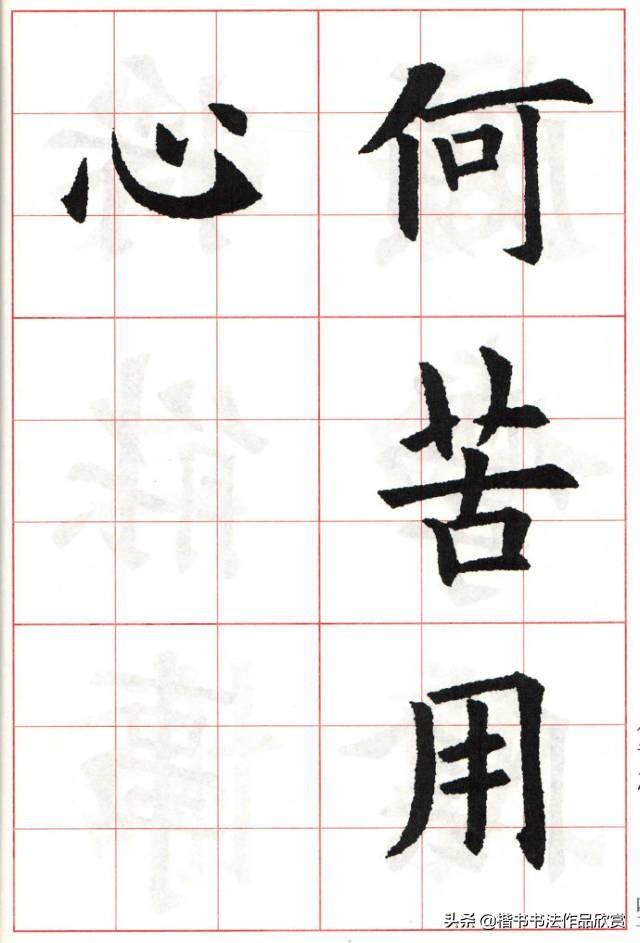 何苦用
心
头条 @楷书书法作品欣赏